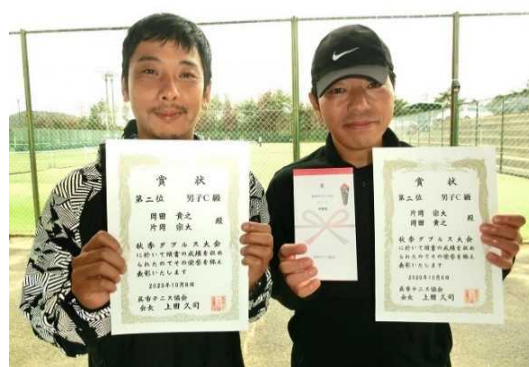 賞状
第二位 男子C級
岡田 貴之
片岡 宗大
殿
秋季ダブルス大会
に於いて頭書の成績を収め
られたのでその栄誉を称え
表彰いたします
2020年10月8日
呉市テニス協会
会長 上田久司
賞状
第二位 男子C級
岡田 貴之
片岡 宗大
殿
秋季ダブルス大会
に於いて頭書の成績を収め
られたのでその栄誉を称え
表彰いたします
2020年10月8日
呉市テニス協会
会長 上田久司